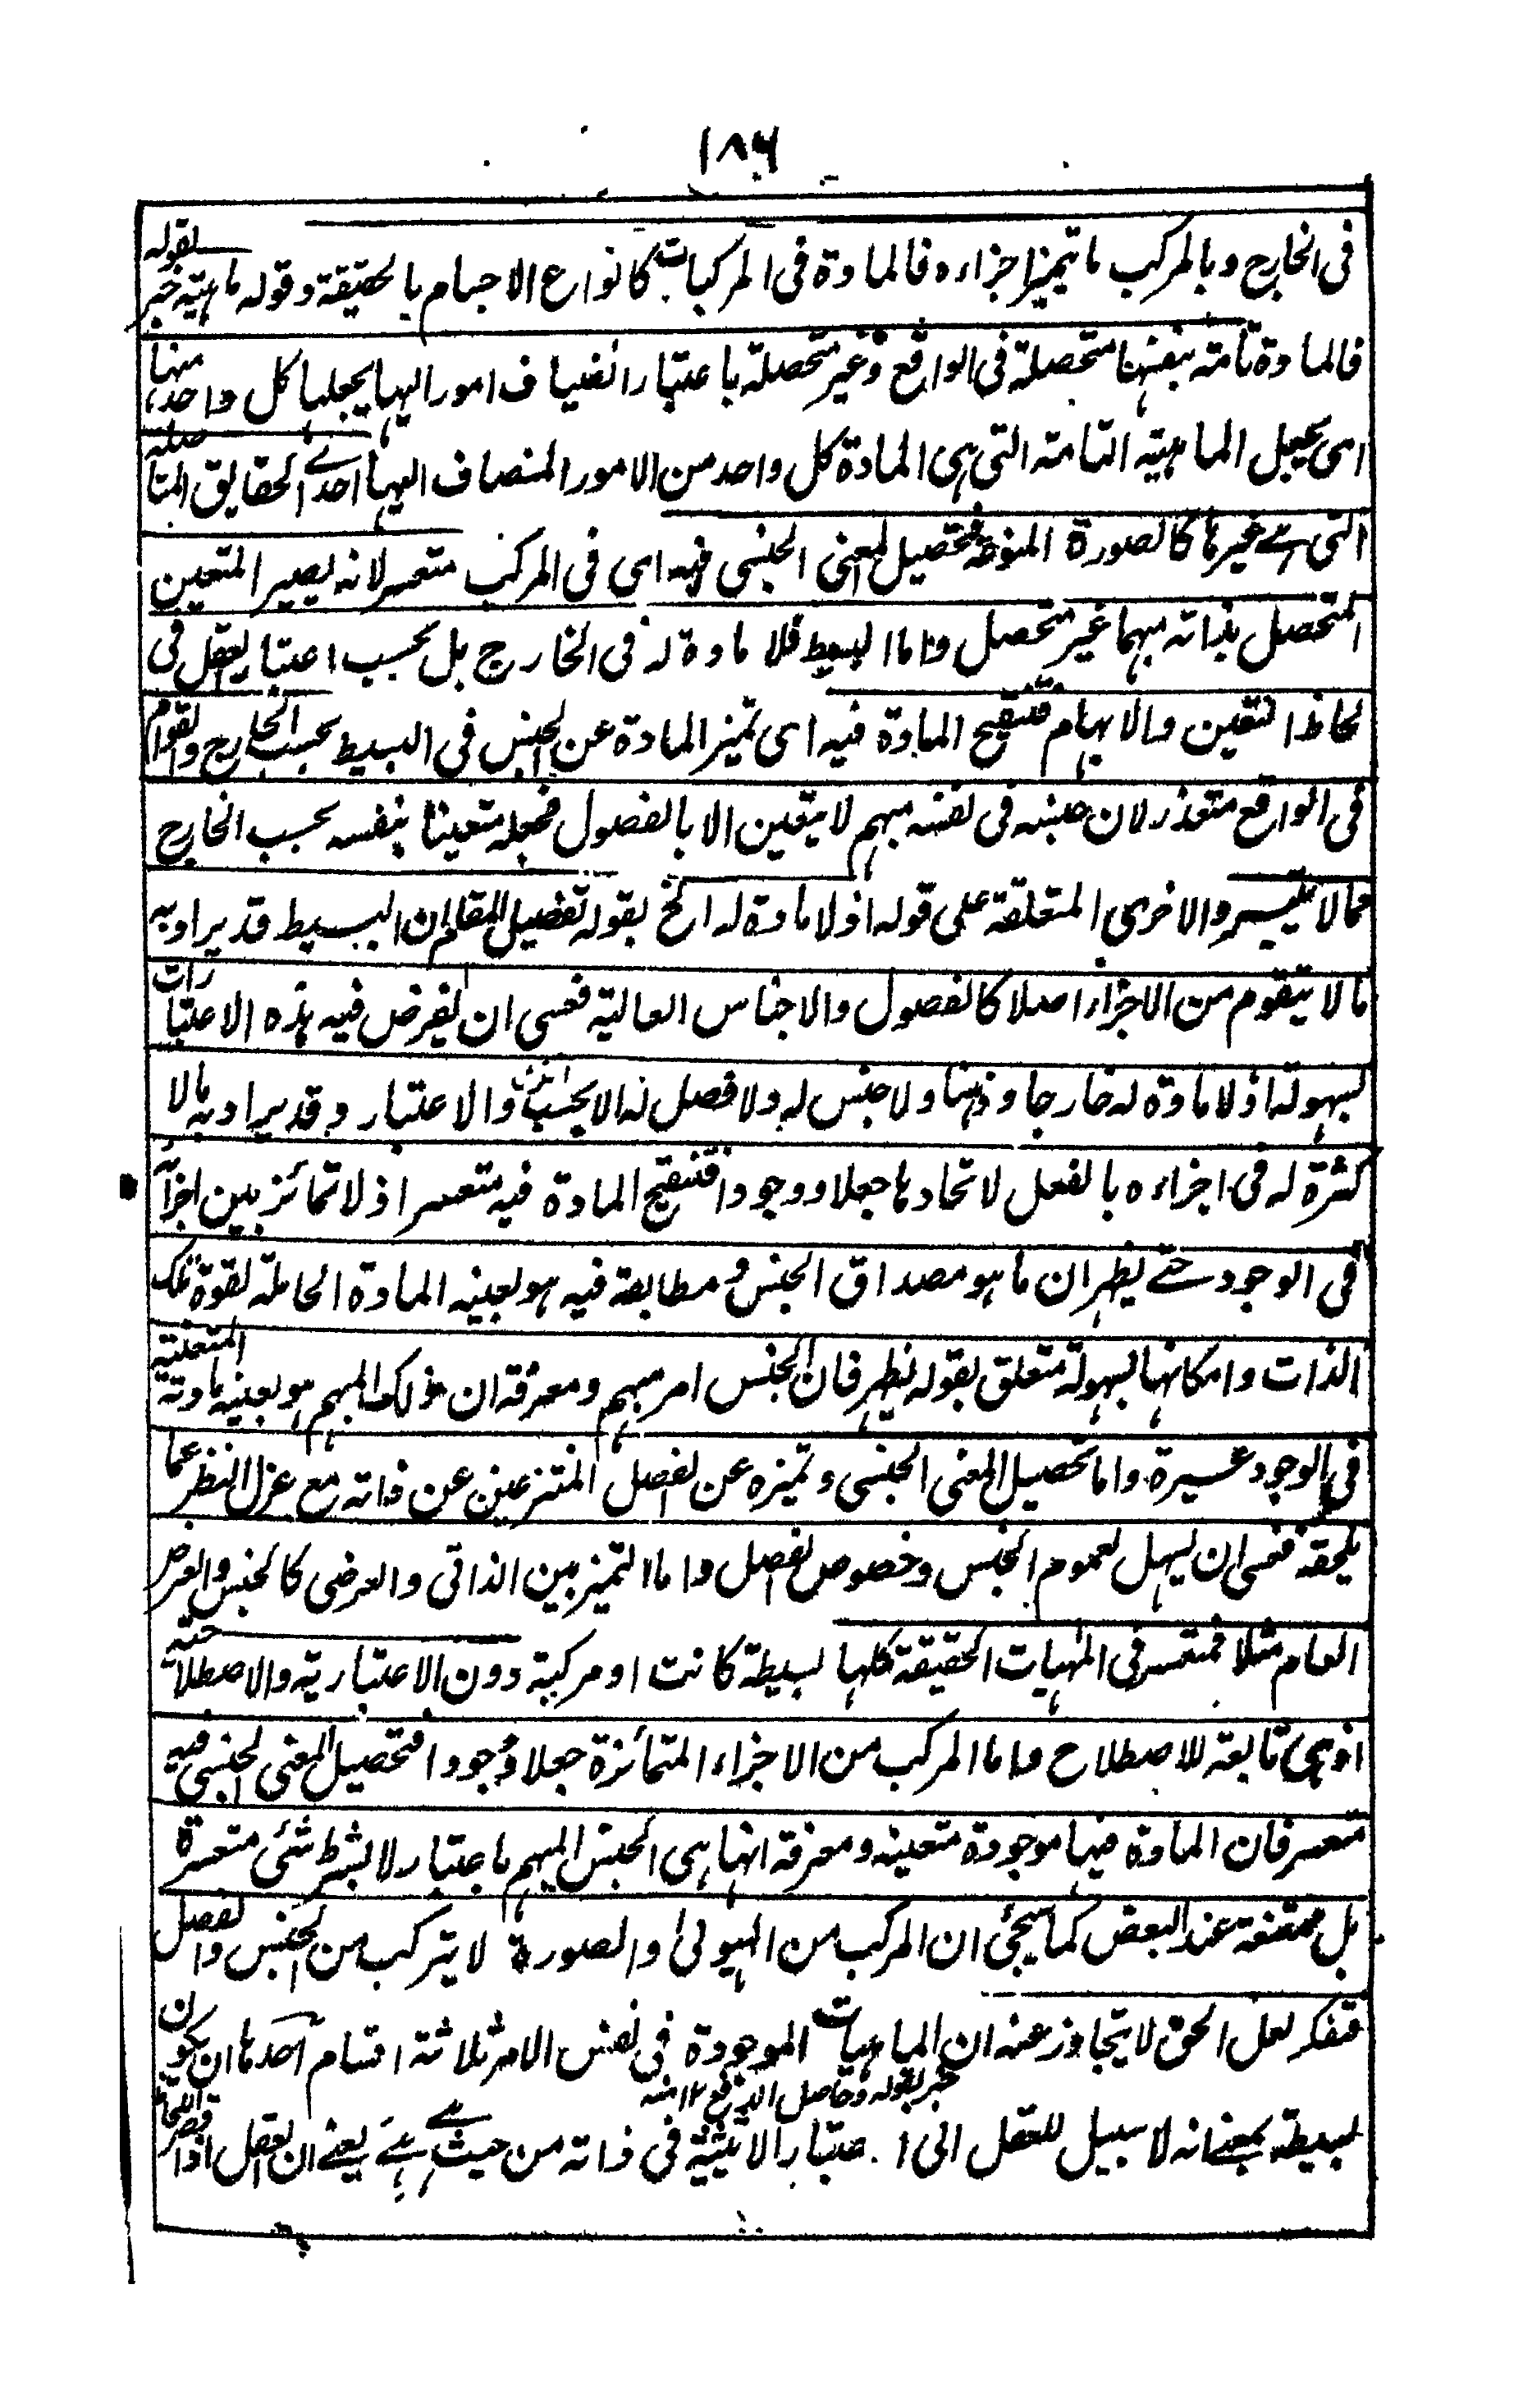 ١٨٦
فى الخارج وبالمركب ما يتميز اجزاءه فالمادة فى المركبات كانواع الاجسام بالحقيقة وقوله ماهيته خبر لقوله
فالمادة تامته بنفسها متحصلة فى الواقع وغير متحصلة باعتبار انضياف امور اليها يجعلها كل واحد منها
اى يجعل الماهية التامة التى هى المادة كل واحد من الامور المنضاف اليها احدے الحقايق المتاصلة
التى هے غيرها كالصورة المنوعة فتحصيل المعنى الجنسى فيه اى فى المركب متعسر لانه يصير المتعين
المتحصل بذاته مبهما غير متحصل واما البسيط فلا مادة له فى الخارج بل بحسب اعتبار العقل فى
لحاظ التعين والابهام فتنقيح المادة فيه اى تميز المادة عن الجنس فى البسيط بحسب الخارج والقوام
فى الواقع متعذر لان جنسه فى نفسه مبهم لا يتعين الا بالفصول فجعله متعينا بنفسه بحسب الخارج
مما لا يتيسر والاخرى المتعلقة على قوله اذ لا مادة له الخ بقوله تفصيل المقام ان البسيط قد يراد به
ما لا يتقوم من الاجزاء اصلا كالفصول والاجناس العالية فعسى ان يفرض فيه هذه الاعتبارات
بسهولة اذ لا مادة له خارجا وذهنا ولا جنس له ولا فصل له الا بحسب والاعتبار وقد يراد به ما لا
كثرة له فى اجزاءه بالفعل لاتحادها جعلا ووجودا فتنقيح المادة فيه متعسر اذ لا تمائز بين اجزائه
فى الوجود حتے يظهر ان ما هو مصداق الجنس ومطابقه فيه هو بعينه المادة الحاملة لقوة تلك
الذات وامكانها بسهولة متعلق بقوله يظهر فان الجنس امر مبهم ومعرفة ان ذلك المبهم هو بعينه مادته المتعينة
فى الوجود عسيرة واما تحصيل المعنى الجنسى وتميزه عن الفصل المنتزعين عن ذاته مع عزل النظر عما
يلحقه فعسى ان يسهل لعموم الجنس وخصوص الفصل واما التميز بين الذاتى والعرضى كالجنس والعرض
العام مثلا فمتعسر فى المهيات الحقيقة كلها بسيطة كانت او مركبة دون الاعتبارية والاصطلاحية
اذ هى تابعة للاصطلاح واما المركب من الاجزاء المتمائزة جعلا ووجودا فتحصيل المعنى الجنسى فيه
متعسر فان المادة فيها موجودة متعينه ومعرفة انها هى الجنس المبهم باعتبار لا بشرط شئى متعسرة
بل ممتنعة عند البعض كما سيجئ ان المركب من الهيولى والصورة لا يتركب من الجنس والفصل
فتفكر لعل الحق لا يتجاوز عنه ان الماهيات الموجودة فى نفس الامر ثلاثة اقسام احدها ان يكون
خبر لقوله وحاصل الدفع ١٢ منه
بسيطة بمعنے انه لا سبيل للعقل الى اعتبار الاثنينية فى ذاته من حيث هے هے يعنے ان العقل اذا قصر اللحاظ